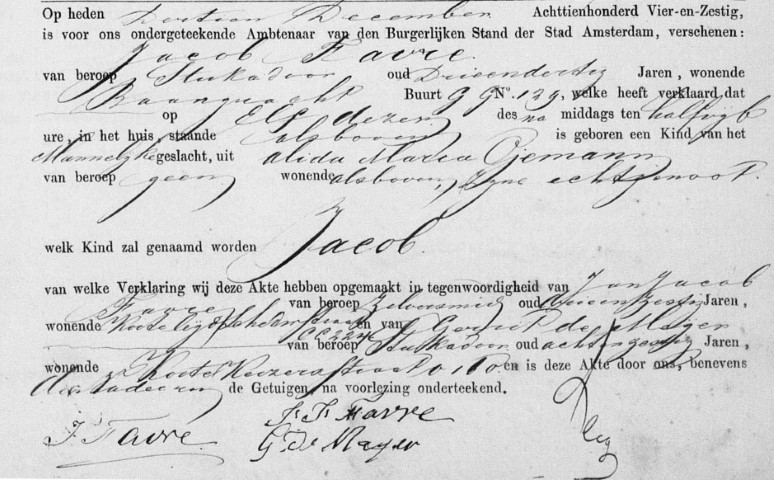 Op heden Dertien December Achttienhonderd Vier-en-Zestig,
is voor ons ondergeteekende Ambtenaar van den Burgerlijken Stand der Stad Amsterdam, verschenen:
Jacob Favre
van beroep Stukadoor oud Drieendertig Jaren, wonende
Baangracht Buurt GG No. 129, welke heeft verklaard, dat
op Elf dezer des na middags ten half vijf
ure, in het huis, staande alsboven is geboren een Kind van het
Mannelijke geslacht, uit Alida Maria Ojemann
van beroep geen wonende alsboven, zijne echtgenoot.
welk Kind zal genaamd worden Jacob
van welke Verklaring wij deze Akte hebben opgemaakt in tegenwoordigheid van Jan Jacob
Favre van beroep Zilversmid oud Jaren,
wonende en van Gerrit de Meijer
van beroep Stukadoor oud Jaren,
wonende en is deze Akte door ons, benevens
de Getuigen, na voorlezing onderteekend.
J. Favre J. J. Favre
G de Mayer